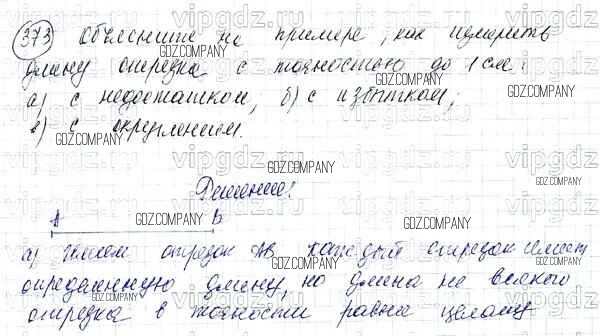 373 Объясните на примере, как измерить
длину отрезка с точностью до 1 см:
а) с недостатком, б) с избытком;
в) с округлением.
Решение:
A B
а) Имеем отрезок AB каждый отрезок имеет
определенную длину, но длина не всякого
отрезка в точности равна целому
vipgdz.ru
GDZ.COMPANY